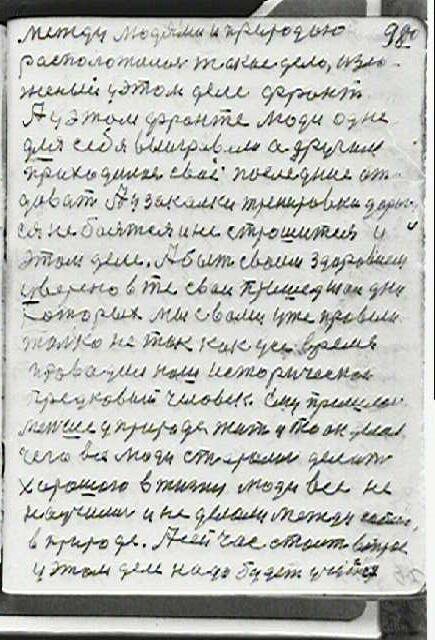 между людями и природою 980
расположился такое дело, изло-
женый у этом деле фронт.
А у этом фронте люди одне
для себя выигровали а другим
приходилося своё последние от-
доват А у закалки тренировки
ся не боятся и не строшится и
этом деле. А быт своим здоровием
уверено в те свои пришедшии дни
Которых мы с вами уже провели
толко не так как усё время
проводил наш исторический
предковый человек. Ему
менше у природе жит и то он делал
чего все люди старалис делат
хорошого в жизни люди все не
научилис и не делали между собою,
в природе. А сей час стоит вопрос
у этом деле надо будет учится